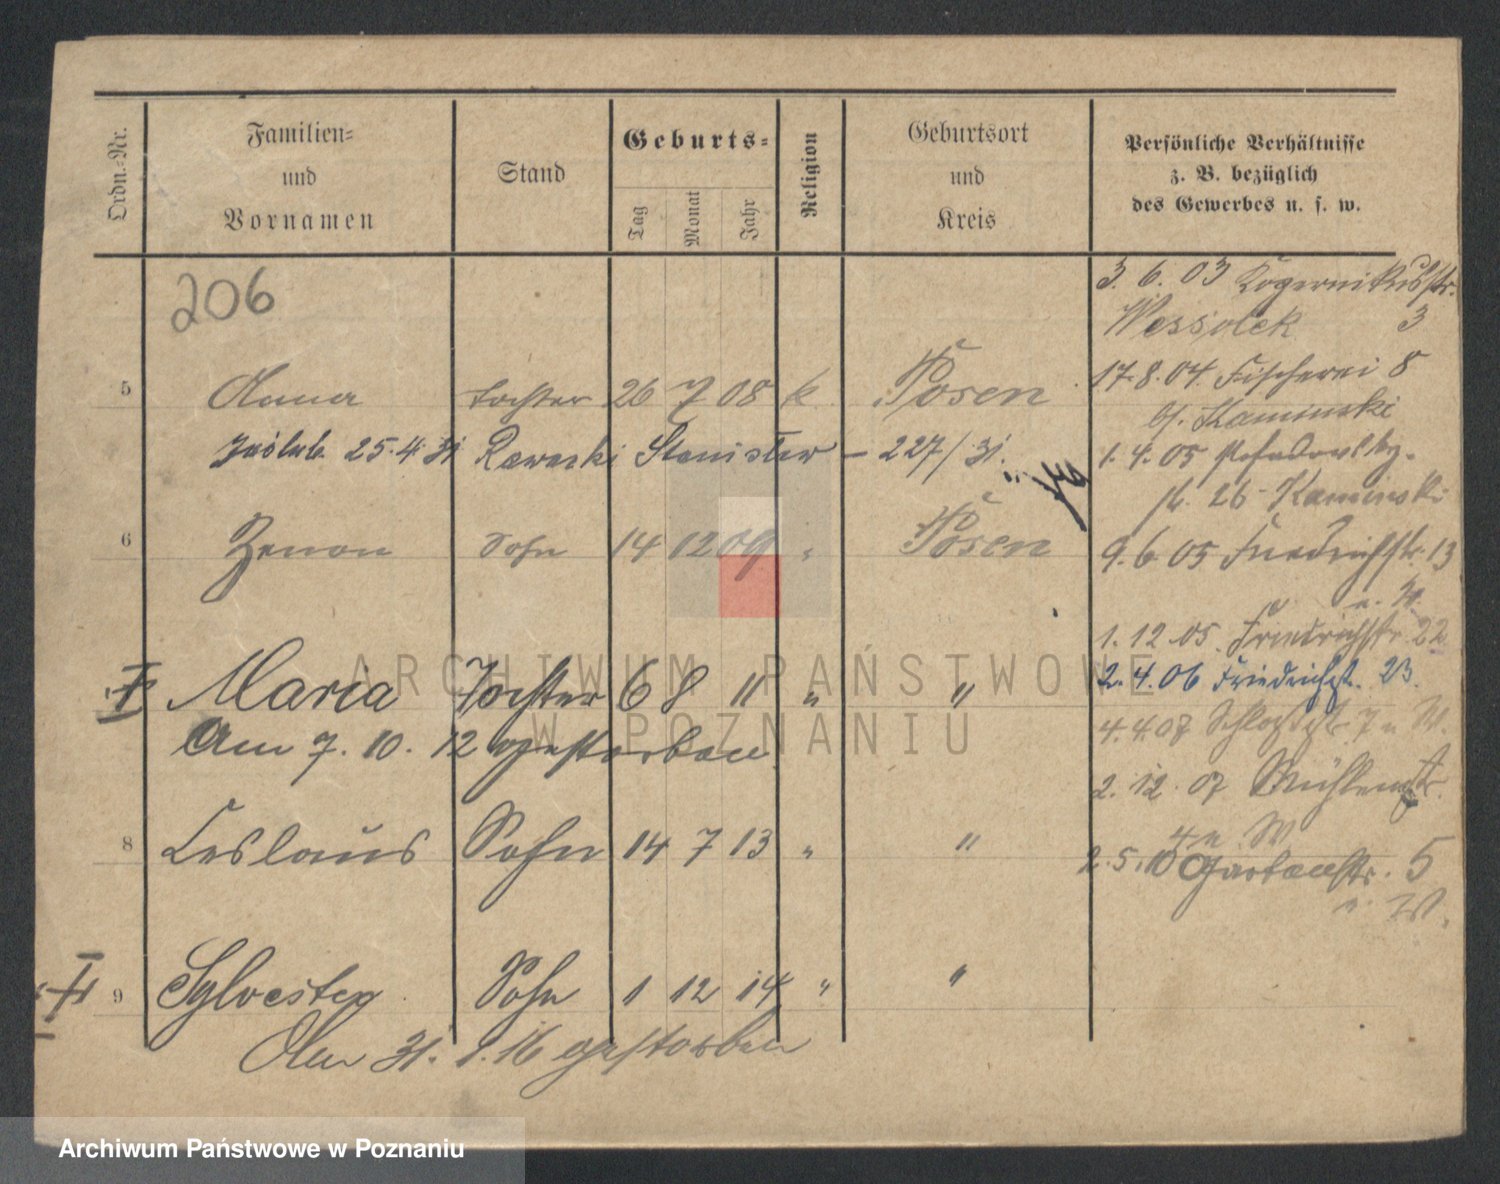 Ordn.-Nr.
Familien-
und
Vornamen
Stand
Geburts-
Tag
Monat
Jahr
Religion
Geburtsort
und
Kreis
Persönliche Verhältnisse
z. B. bezüglich
des Gewerbes u. s. w.
206
3. 6. 03
3
5 Tochter 26 7 08 k. Posen
17. 8. 04. Fischerei 8
b/. Kaminski
25. 4. 31 Stanislaw – 227/31.
1. 4. 05
26 Kaminski
6 Zenon Sohn 14 12 09 " Posen
9. 6. 05 Friedrichstr. 13
1. 12. 05. Friedrichstr. 22
† Maria Tochter 6 8 11 " "
2. 4. 06 Friedrichst. 23.
Am 7. 10. 12 gestorben
4. 4. 07 7 W.
2. 12. 07 Mühlenstr.
4 W
8 Ceslaus Sohn 14 7 13 " "
2. 5. 10 Gartenstr. 5
W.
† 9 Sylvester Sohn 1 12 14 " "
Am 31. 1. 16 gestorben
ARCHIWUM PAŃSTWOWE
W POZNANIU
Archiwum Państwowe w Poznaniu